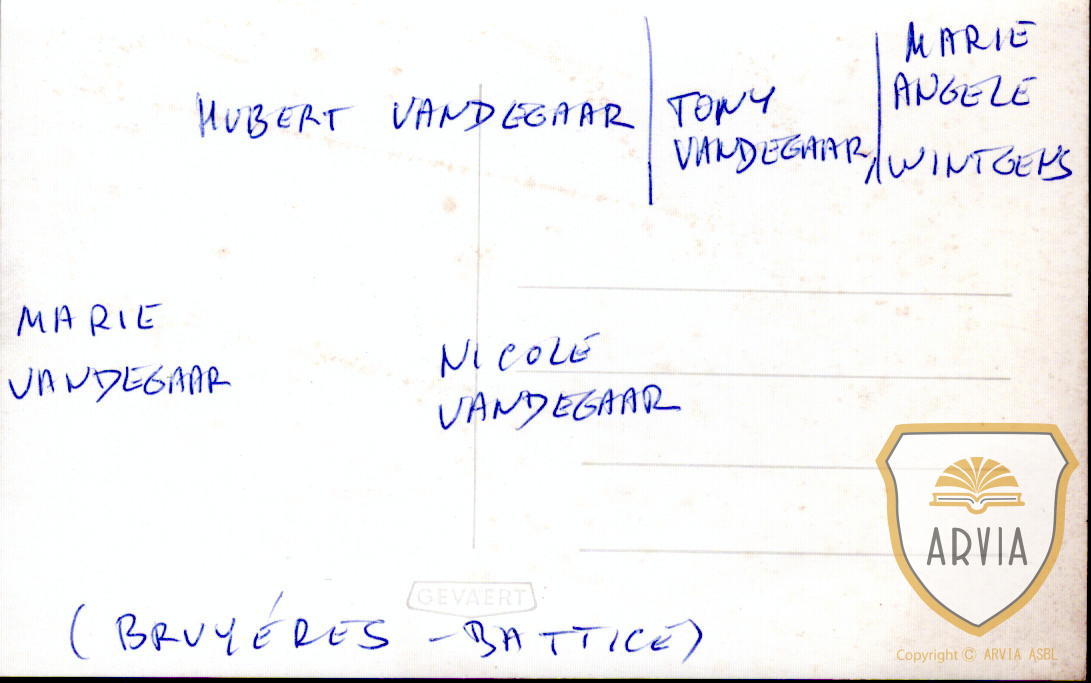 HUBERT VANDEGAAR
TONY
VANDEGAAR
MARIE
ANGELE
WINTGENS
MARIE
VANDEGAAR
NICOLE
VANDEGAAR
GEVAERT
(BRUYÉRES - BATTICE)
ARVIA
Copyright © ARVIA ASBL